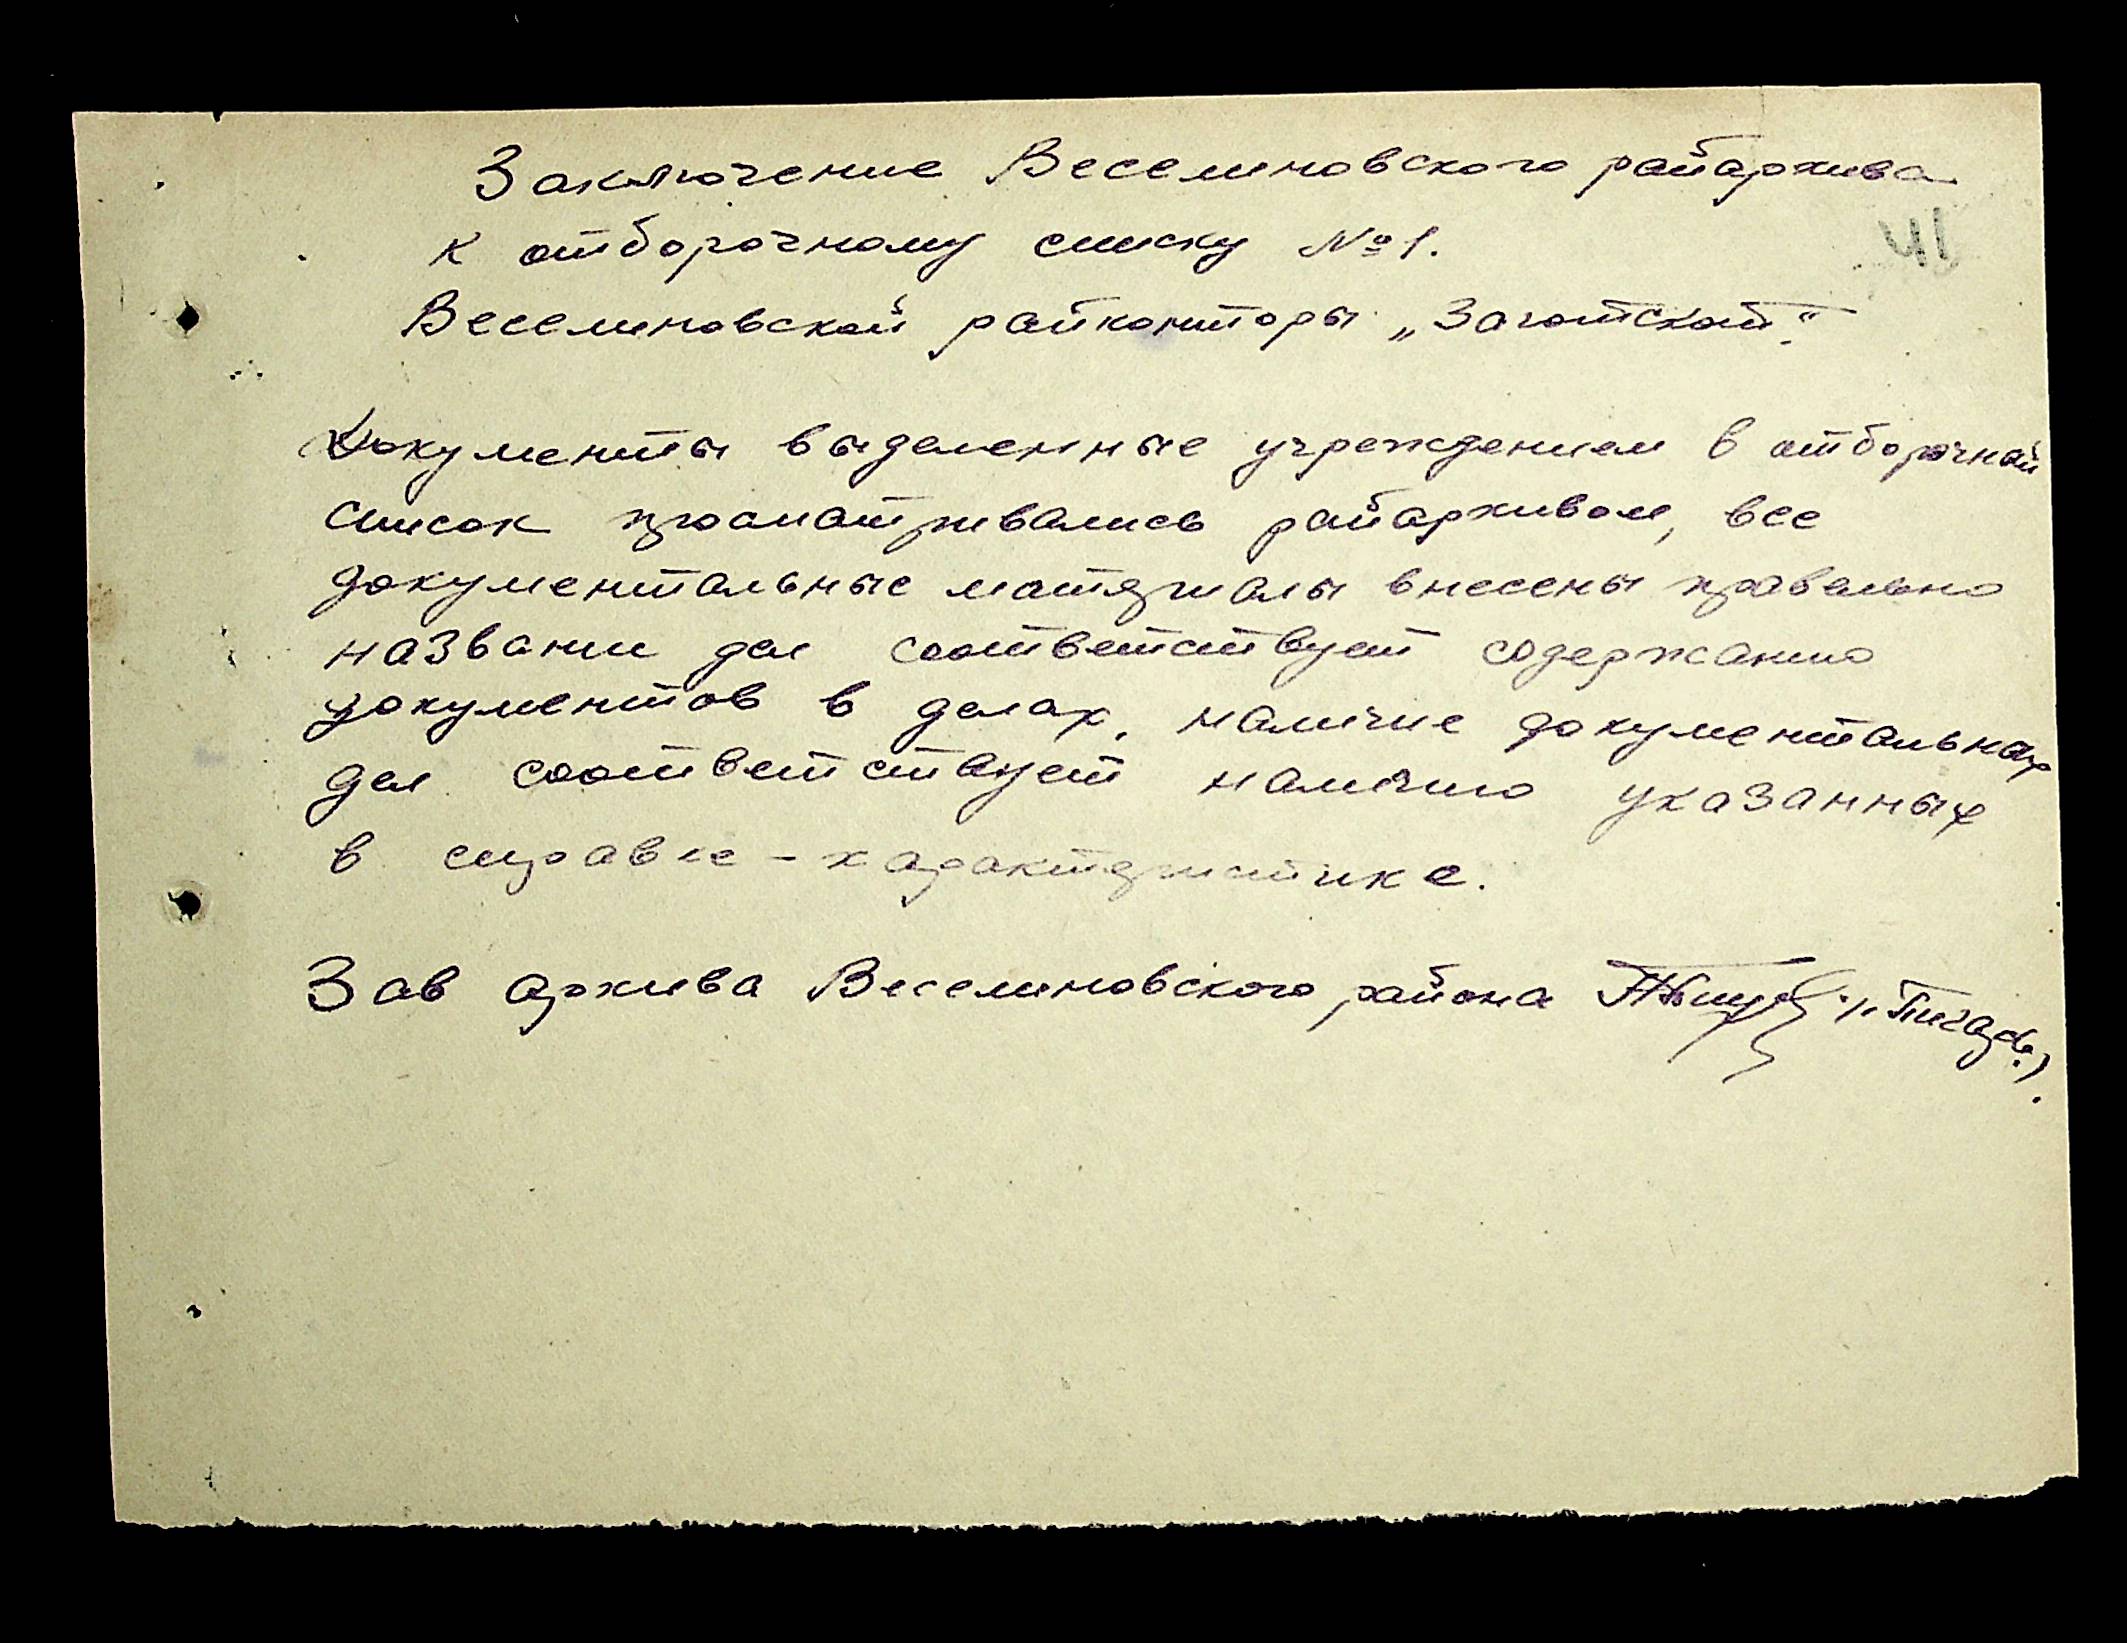 Заключение Веселиновского райархива
к отборочному списку № 1.
41
Веселиновской райконторы „Заготскот".
Документы выделенные учреждением в отборочный
список просматривались райархивом, все
документальные материалы внесены правельно
названи дел соответствует содержанию
документов в делах, наличие документальных
дел соответствует наличию указанных
в справке-характеристике.
Зав архива Веселиновского района